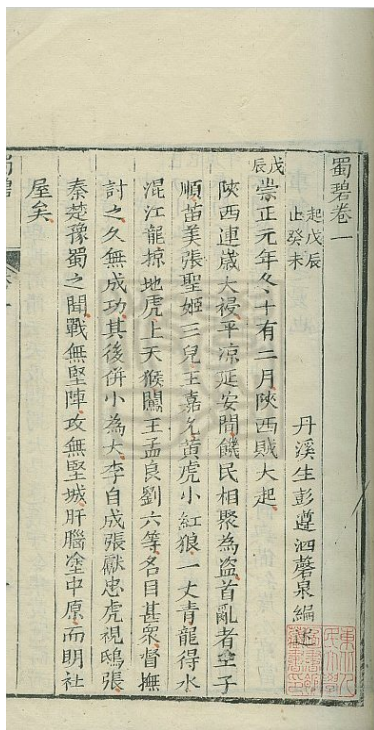 蜀碧卷一
起戊辰
止癸未
丹溪生彭遵泗磬泉編述
戊辰
崇正元年冬十有二月陝西賊大起
陝西連歲大祲平凉延安間饑民相聚為盗首亂者王子
順苗美張聖姬三兒王嘉允黄虎小紅狼一丈青龍得水
混江龍掠地虎上天猴闖王孟良劉六等名目甚衆督撫
討之久無成功其後併小為大李自成張獻忠虎視鴟張
秦楚豫蜀之閒戰無堅陣攻無堅城肝腦塗中原而明社
屋矣
蜀碧
卷一